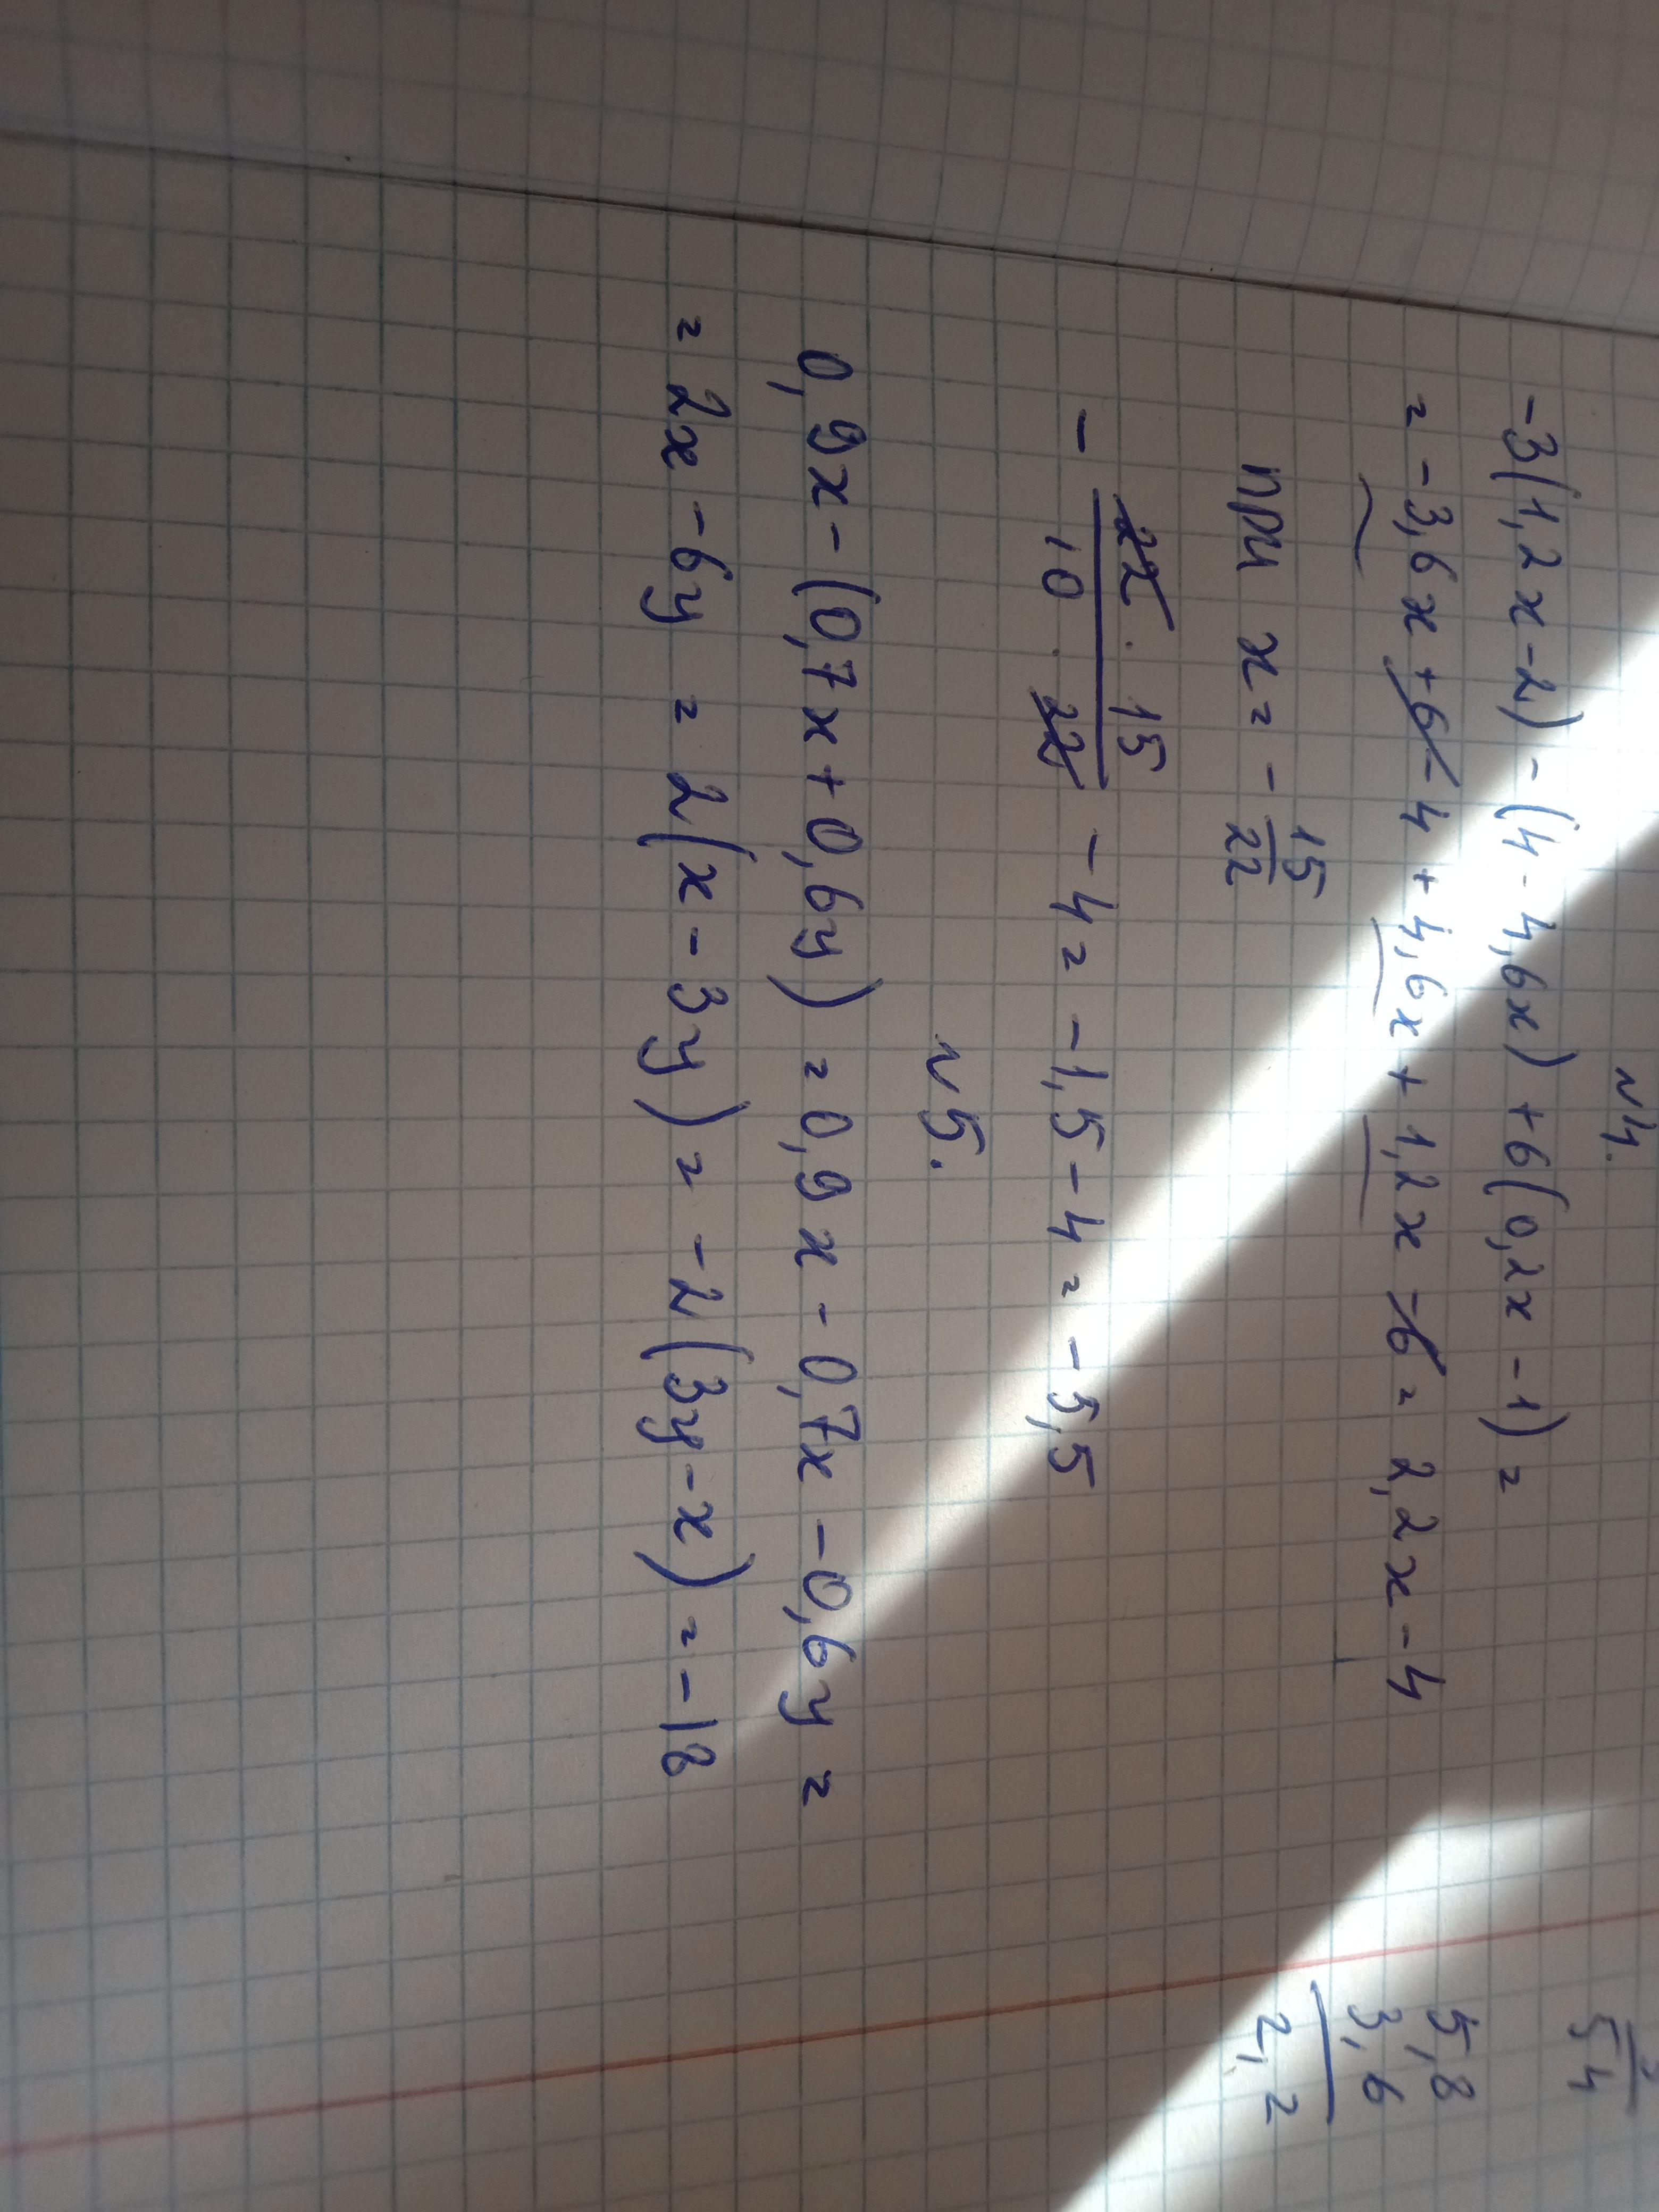 N4.
-3(1,2x-2)-(4-4,6x)+6(0,2x-1)=
=-3,6x+6-4+4,6x+1,2x-6=2,2x-4
при x=-15/22
-22·15/10·22-4=-1,5-4=-5,5
N5.
0,9x-(0,7x+0,6y)=0,9x-0,7x-0,6y=
=2x-6y=2(x-3y)=-2(3y-x)=-18
54
5,8
3,6
2,2